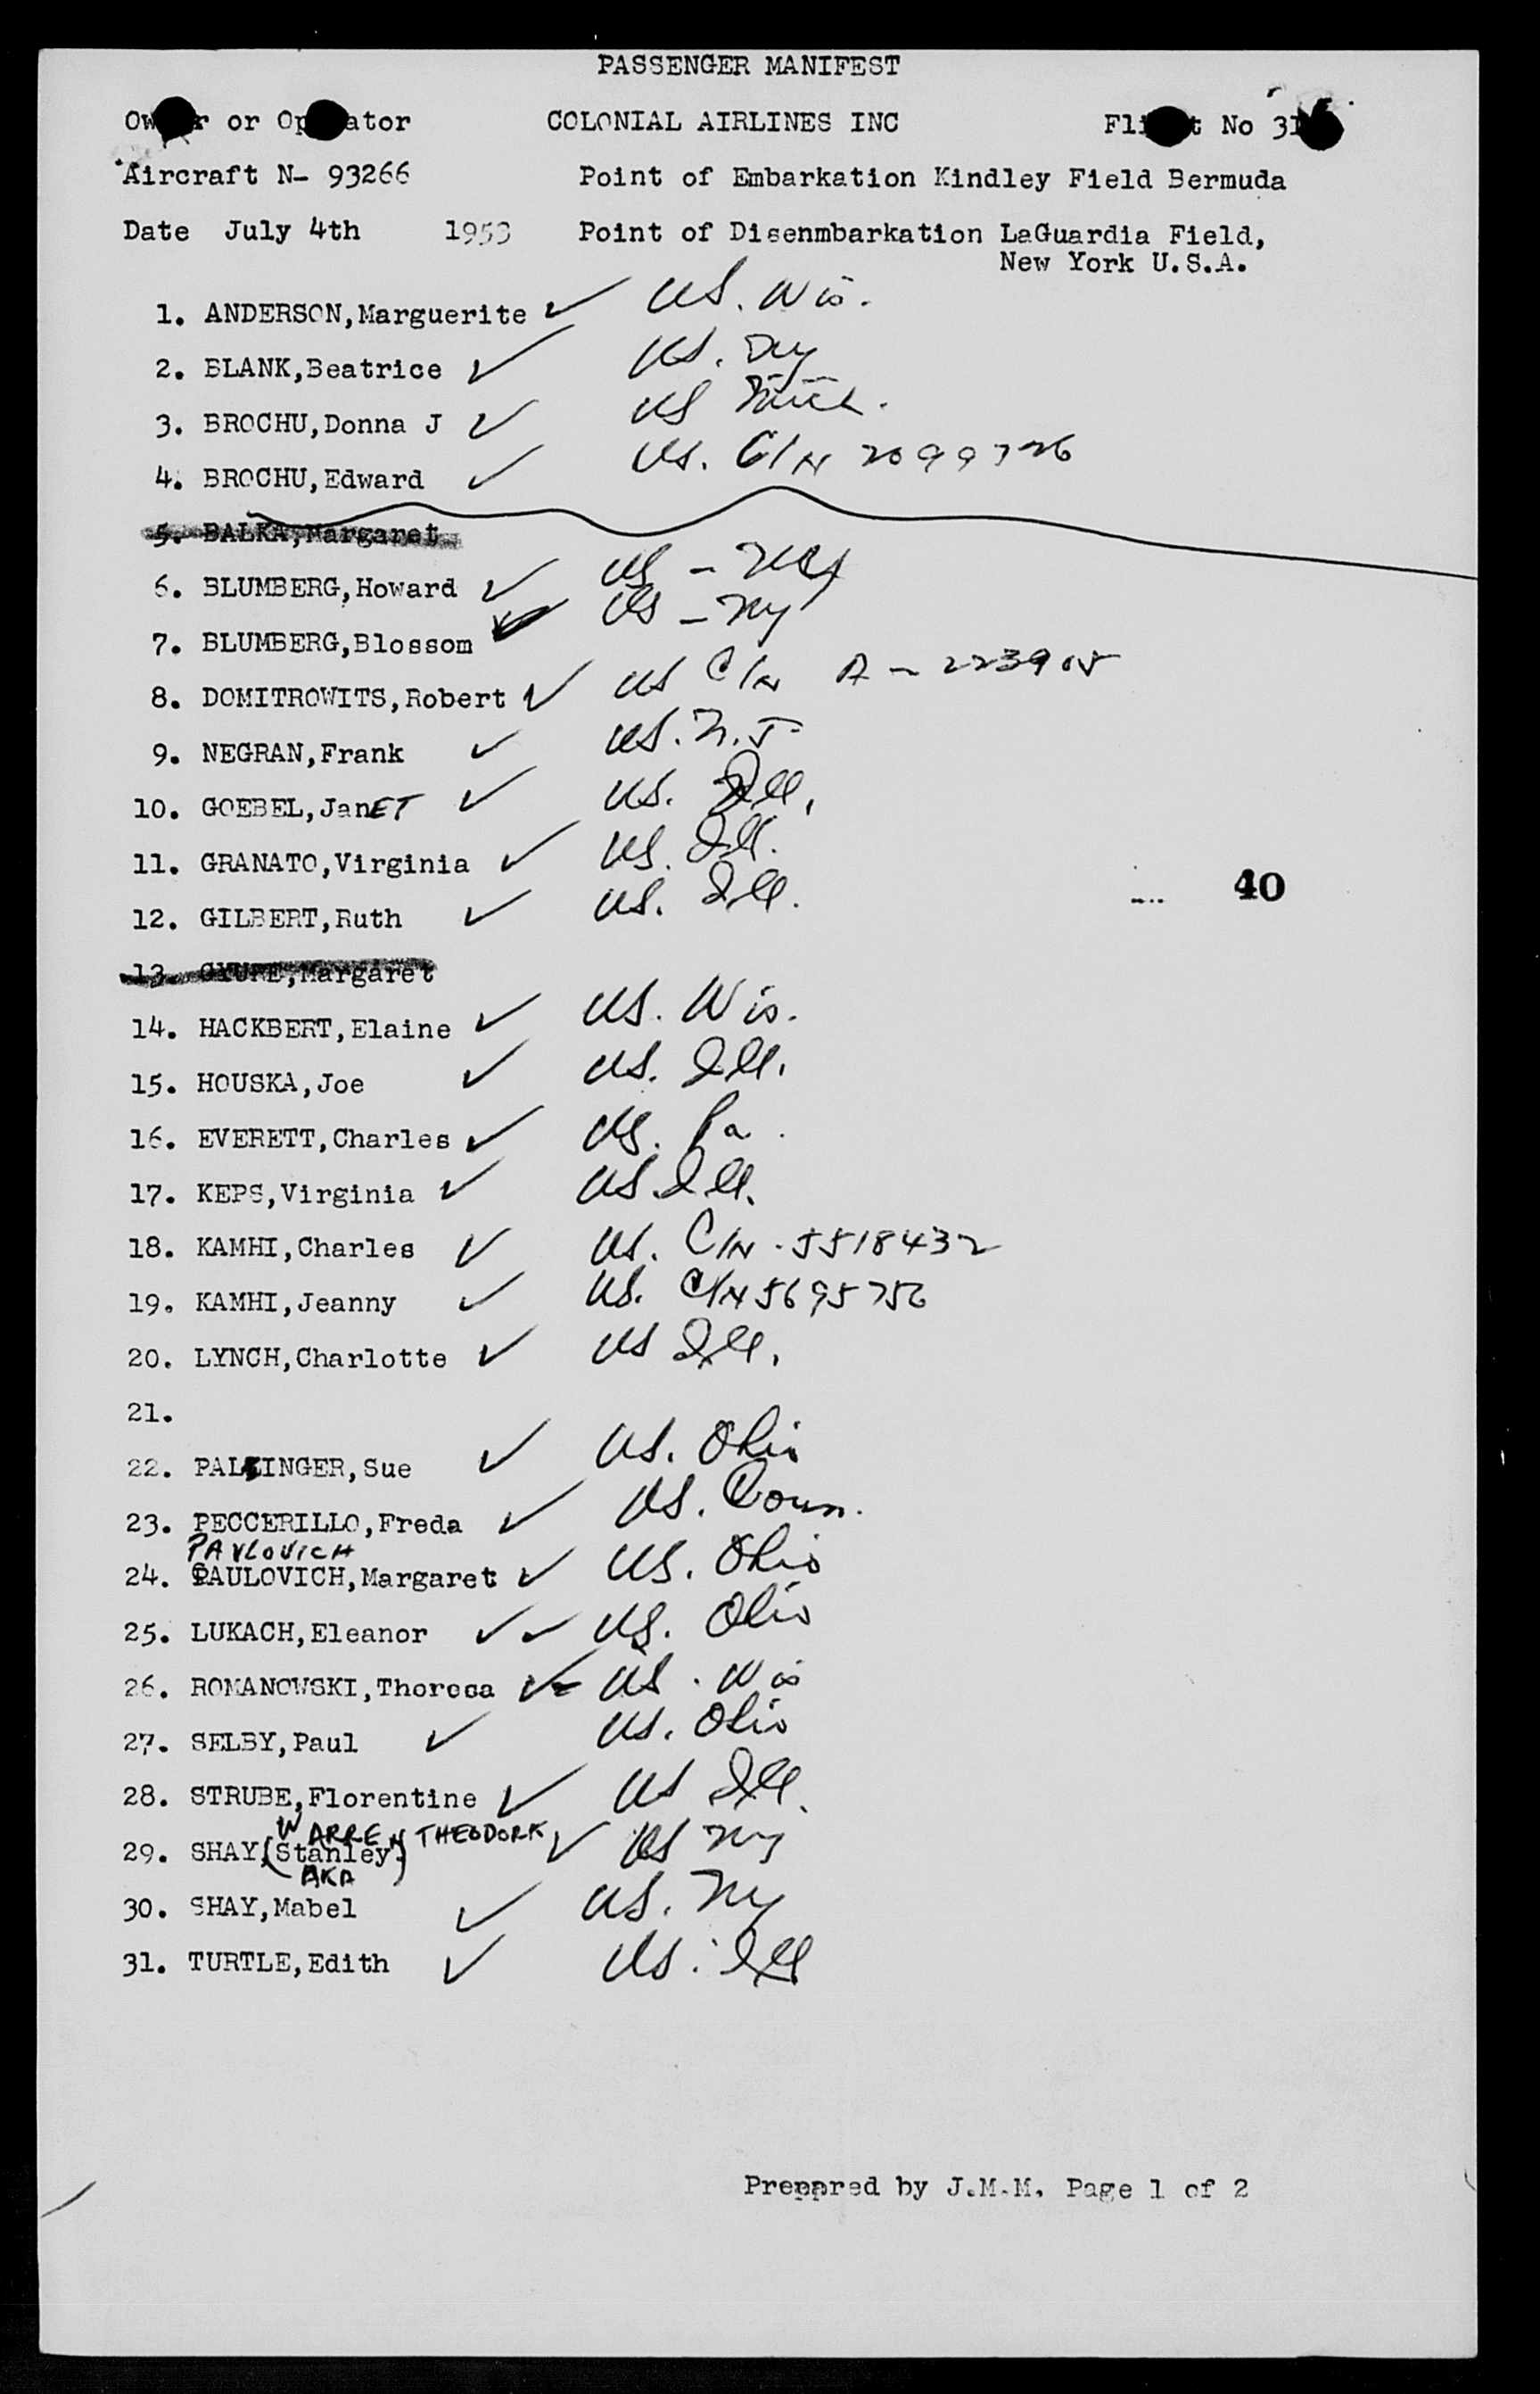 PASSENGER MANIFEST
or COLONIAL AIRLINES INC No
Aircraft N- 93266 Point of Embarkation Kindley Field Bermuda
Date July 4th 1953 Point of Disenmbarkation LaGuardia Field,
New York U.S.A.
1. ANDERSON,Marguerite ✓ US. Wis.
2. BLANK,Beatrice ✓ US. NY
3. BROCHU,Donna J ✓ US Mich.
4. BROCHU,Edward ✓ US. C/N 2099726
5. BALKA,Margaret
6. BLUMBERG,Howard ✓ US - NY
7. BLUMBERG,Blossom ✓ US - NY
8. DOMITROWITS,Robert ✓ US C/N A - 223905
9. NEGRAN,Frank ✓ US. N.J.
10. GOEBEL,JanET ✓ US. Ill.
11. GRANATO,Virginia ✓ US. Ill.
12. GILBERT,Ruth ✓ US. Ill.
40
13. Margaret
14. HACKBERT,Elaine ✓ US. Wis.
15. HOUSKA,Joe ✓ US. Ill.
16. EVERETT,Charles ✓ US. Pa.
17. KEPS,Virginia ✓ US Ill.
18. KAMHI,Charles ✓ US. C/N - 5518432
19. KAMHI,Jeanny ✓ US. C/N 5695756
20. LYNCH,Charlotte ✓ US Ill.
21.
22. Sue ✓ US. Ohio
23. PECCERILLO,Freda ✓ US. Conn.
PAVLOVICH
24. PAULOVICH,Margaret ✓ US. Ohio
25. LUKACH,Eleanor ✓✓ US. Ohio
26. ROMANOWSKI,Theresa ✓ US. Wis
27. SELBY,Paul ✓ US. Ohio
28. STRUBE,Florentine ✓ US Ill.
WARREN THEODORE
29. SHAY,(Stanley) ✓ US NY
AKA
30. SHAY,Mabel ✓ US. NY
31. TURTLE,Edith ✓ US. Ill
Prepared by J.M.M. Page 1 of 2